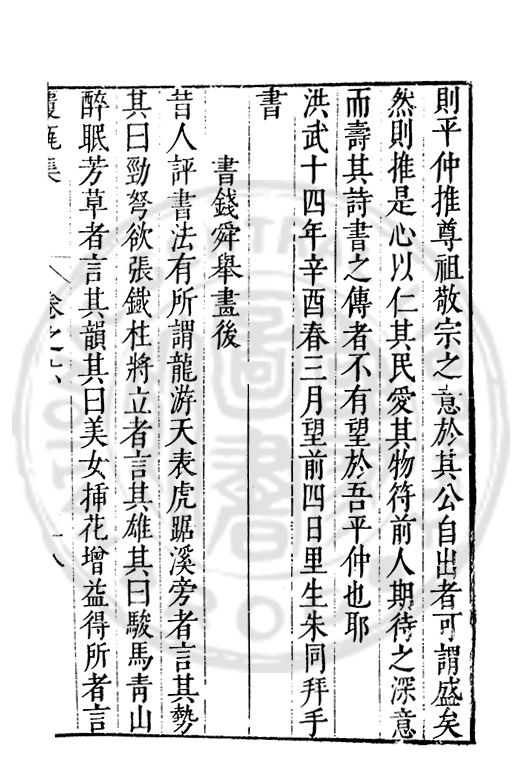 則平仲推尊祖敬宗之意於其公自出者可謂盛矣
然則推是心以仁其民愛其物符前人期待之深意
而壽其詩書之傳者不有望於吾平仲也耶
洪武十四年辛酉春三月望前四日里生朱同拜手
書
書錢舜舉畫後
昔人評書法有所謂龍游天表虎踞溪旁者言其勢
其曰勁弩欲張鐵柱將立者言其雄其曰駿馬青山
醉眠芳草者言其韻其曰美女揷花增益得所者言
覆瓿集 卷之六 十八